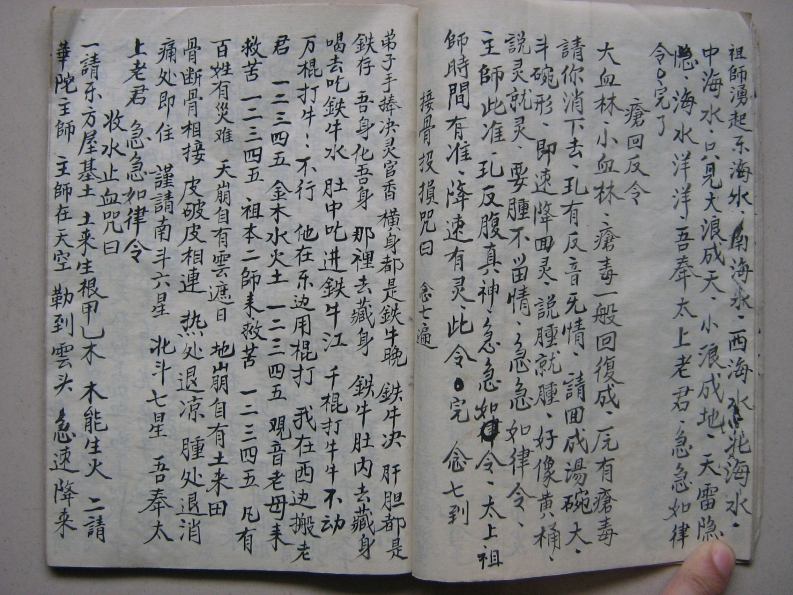 祖師湧起东海水、南海水、西海水、北海水、
中海水、只見大浪成天、小浪成地、天雷隐
隐、海水洋洋、吾奉太上老君、急急如律
令、完了
瘡回反令
大血林、小血林、瘡毒一般回復成、
請你消下去、孔有反音旡情、請回成湯碗、大、
斗碗形、即速降回灵、説腫就腫、好像黄桶、
説灵就灵、要腫不畄情、急急如律令、
主師此准、孔反腹真神、急急如令、太上祖
師時間有准、降速有灵、此令。完 念七到
接骨投損咒曰 念七遍
弟子手捧决灵官香 横身都是鉄牛晚 鉄牛决 肝胆都是
鉄存 吾身化吾身 那裡去藏身 鉄牛肚内去藏身
喝去吃鉄牛水 肚中吃进鉄牛江 千棍打牛牛不动
万棍打牛、不行 他在东边用棍打 我在西边搬老
君 一二三四五 金木水火土 一二三四五 观音老母来
救苦 一二三四五 祖本二师来救苦 一二三四五 凡有
百姓有災难 天崩自有雲遮日 地崩自有土来田
骨断骨相接 皮破皮相連 热处退凉 腫处退消
痛处即住 謹請南斗六星 北斗七星 吾奉太
上老君 急急如律令
收水止血咒曰
一請东方屋基土 土来生根甲乙木 木能生火 二請
華陀主師 主師在天空 勒到雲头 急速降来